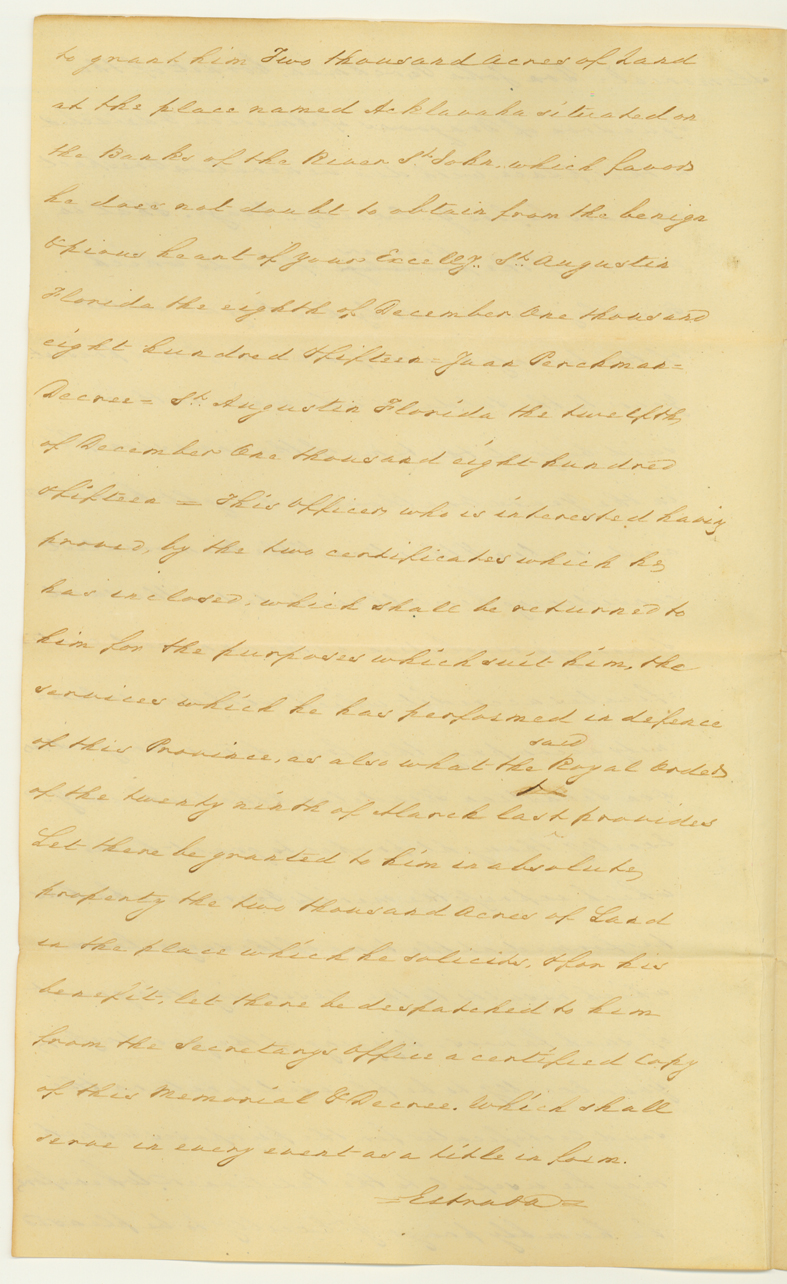 to grant him Two thousand acres of Land
at the place named Acklavaha situated on
the Banks of the River St. John, which favor
he does not doubt to obtain from the benign
& pious heart of your Excelly. St. Augustin
Florida the eighth of December One thousand
eight hundred & fifteen = Juan Perchman =
Decree = St. Augustin Florida the twelfth
of December One thousand eight hundred
& fifteen = This Officer, who is interested having
proved, by the two certificates which he
has inclosed, which shall be returned to
him for the purposes which suit him, the
services which he has performed in defence
of this Province, as also what the said Royal Order
of the twenty ninth of March last provides
Let there be granted to him in absolute
property the two thousand acres of Land
in the place which he solicits, & for his
benefit, let there be despatched to him
from the Secretarys Office a certified Copy
of this Memorial & Decree. Which shall
serve in every event as a title in form.
=Estrada=